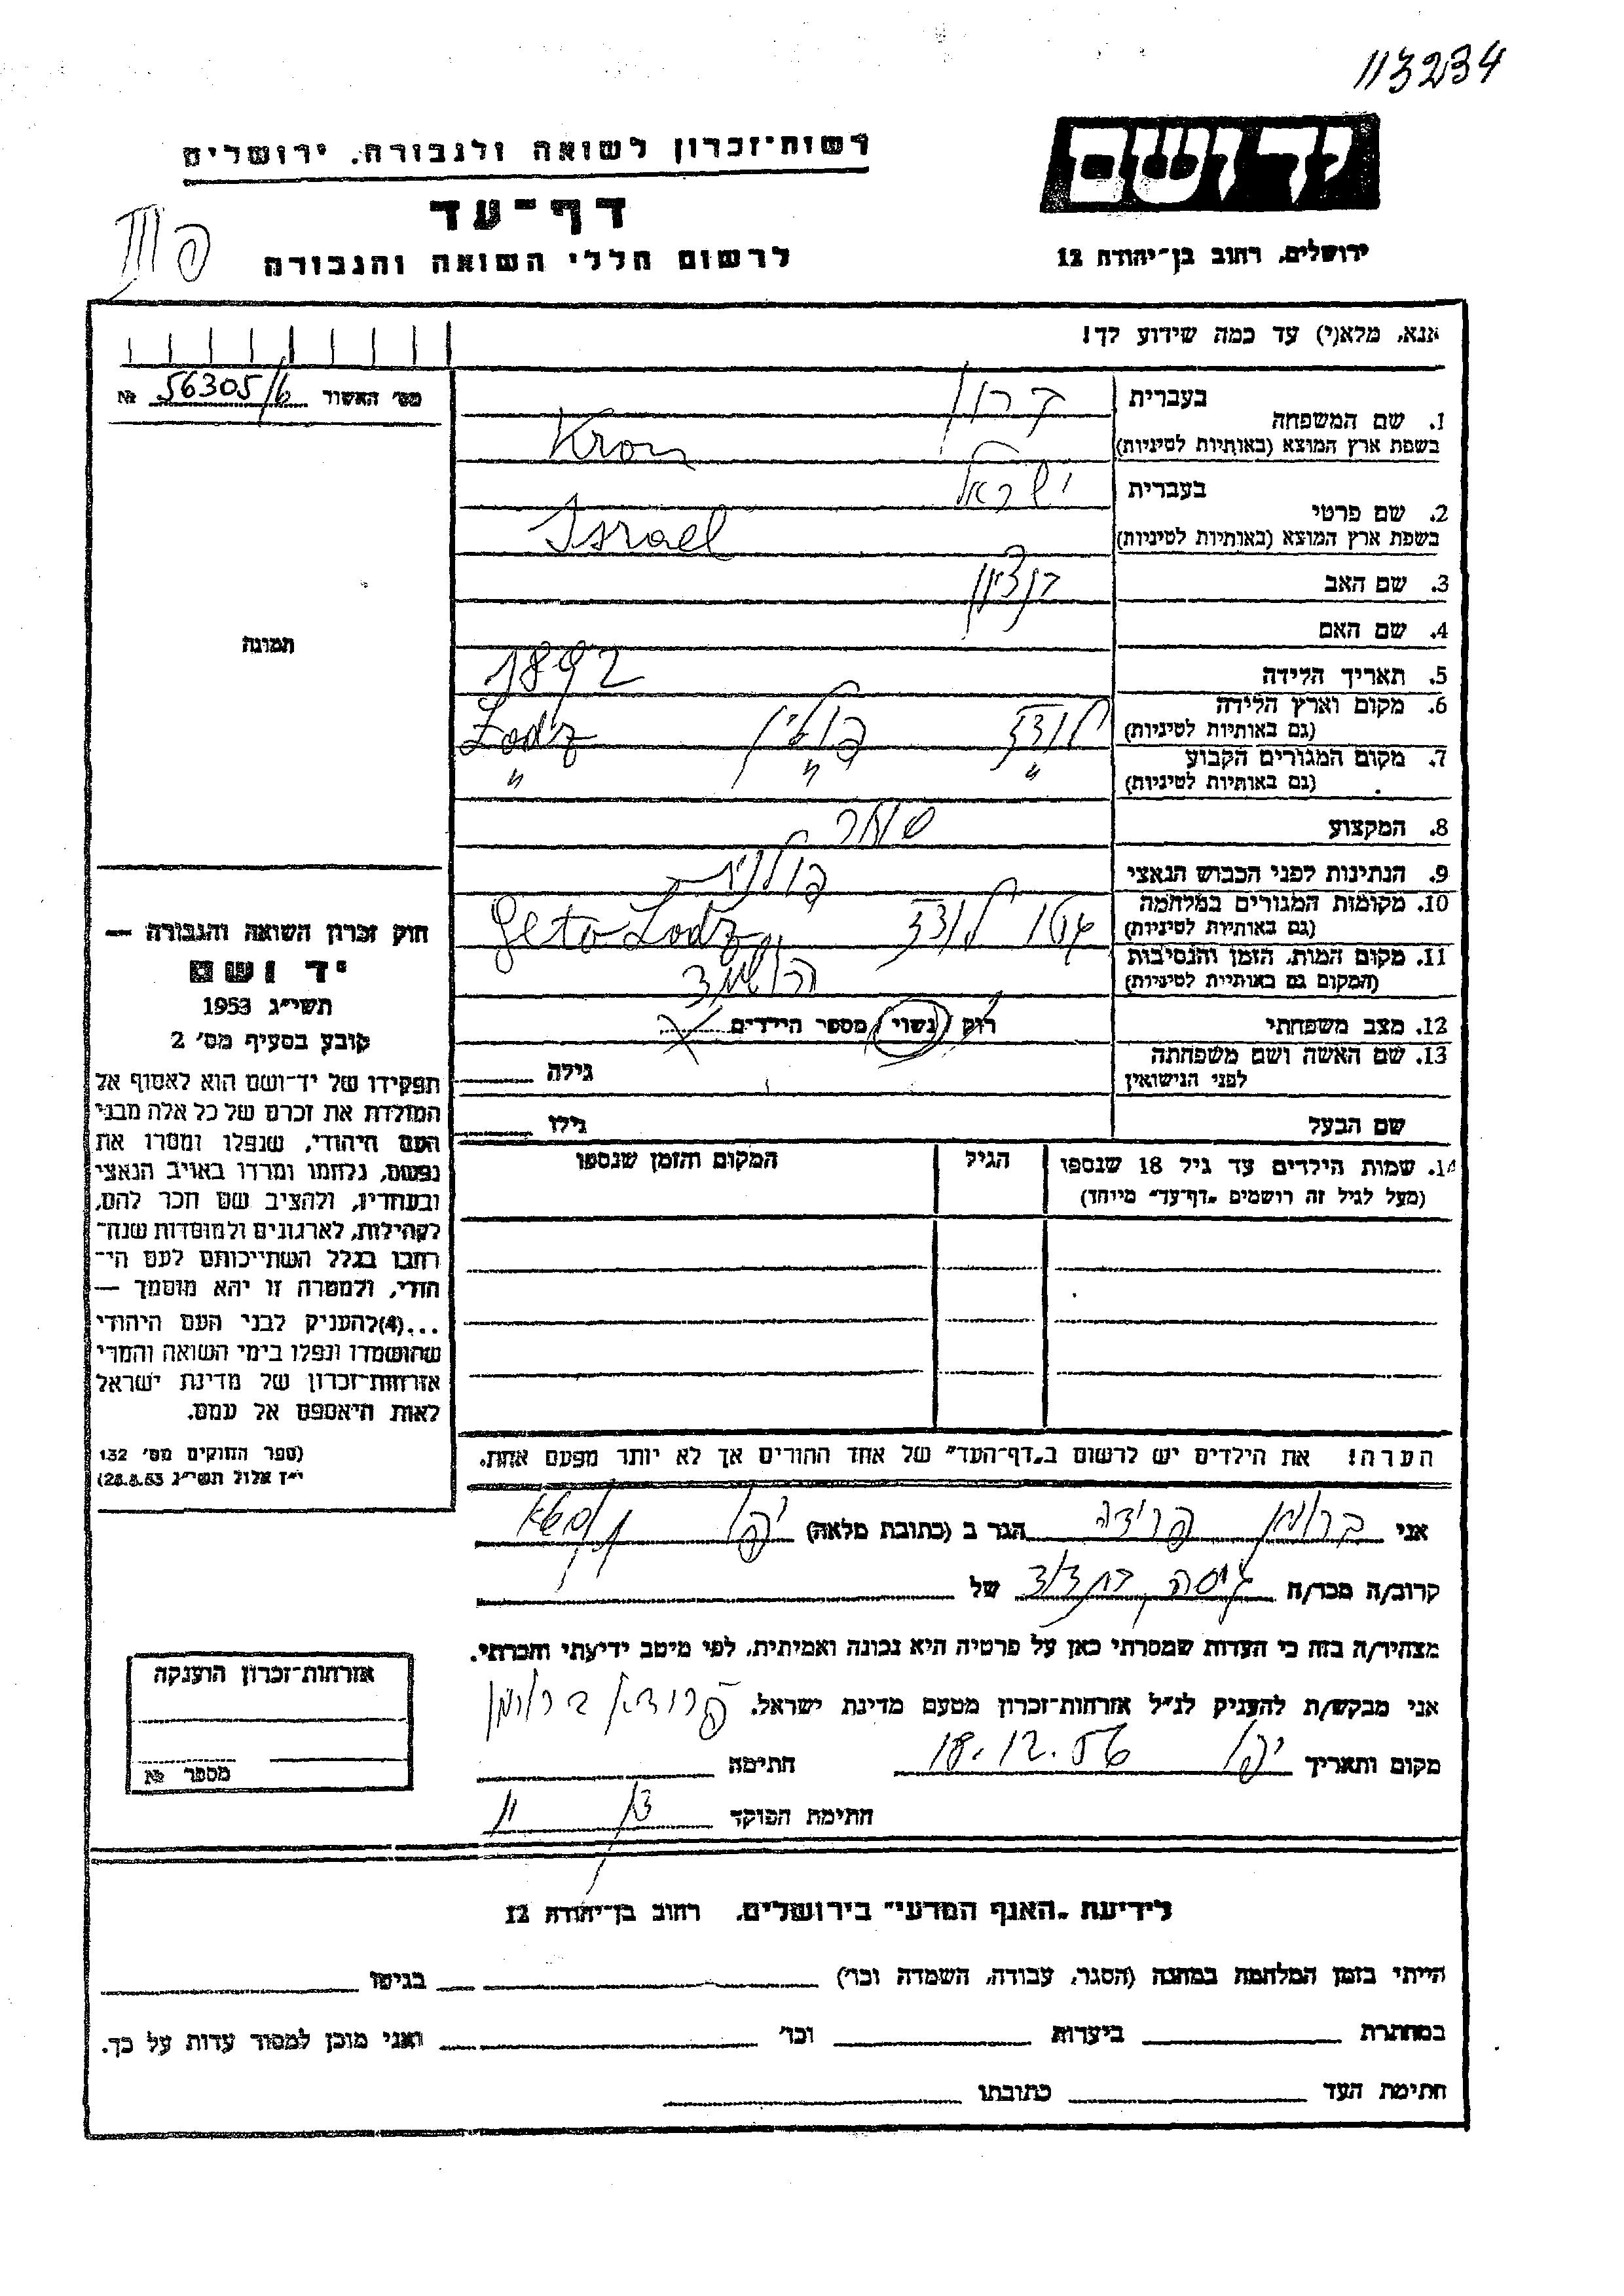 113234
יד ושם
רשות־זכרון לשואה ולגבורה, ירושלים
דף־עד
לרשום חללי השואה והגבורה
ירושלים, רחוב בן־יהודה 12
אנא, מלא(י) עד כמה שידוע לך!
מס׳ האשור 56305/6 №
1. שם המשפחה
בעברית קרון
בשפת ארץ המוצא (באותיות לטיניות) Kron
2. שם פרטי
בעברית ישראל
בשפת ארץ המוצא (באותיות לטיניות) Israel
3. שם האב בן ציון
4. שם האם
תמונה
5. תאריך הלידה 1892
6. מקום וארץ הלידה
(גם באותיות לטיניות) לודז פולין Lodz
7. מקום המגורים הקבוע
(גם באותיות לטיניות) " " "
8. המקצוע סוחר
9. הנתינות לפני הכבוש הנאצי פולנית
10. מקומות המגורים במלחמה
(גם באותיות לטיניות) גטו לודז Geto Lodz
11. מקום המות, הזמן והנסיבות
(המקום גם באותיות לטיניות)
12. מצב משפחתי רוק / נשוי / מספר הילדים
13. שם האשה ושם משפחתה
לפני הנישואין גילה
שם הבעל גילו
14. שמות הילדים עד גיל 18 שנספו הגיל המקום והזמן שנספו
(מעל לגיל זה רושמים „דף־עד” מיוחד)
הערה! את הילדים יש לרשום ב„דף־העד” של אחד ההורים אך לא יותר מפעם אחת.
חוק זכרון השואה והגבורה —
יד ושם
תשי״ג 1953
קובע בסעיף מס׳ 2
תפקידו של יד־ושם הוא לאסוף אל
המולדת את זכרם של כל אלה מבני
העם היהודי, שנפלו ומסרו את
נפשם, נלחמו ומרדו באויב הנאצי
ובעוזריו, ולהציב שם וזכר להם,
לקהילות, לארגונים ולמוסדות שנח־
רבו בגלל השתייכותם לעם הי־
הודי, ולמטרה זו יהא מוסמך —
...(4)להעניק לבני העם היהודי
שהושמדו ונפלו בימי השואה והמרי
אזרחות־זכרון של מדינת ישראל
לאות היאספם אל עמם.
(ספר החוקים מס׳ 132
י״ז אלול תשי״ג 28.8.53)
אני ברומן פרידה הגר ב (כתובת מלאה) יפו
קרוב/ה מכר/ה גיסה של
מצהיר/ה בזה כי העדות שמסרתי כאן על פרטיה היא נכונה ואמיתית, לפי מיטב ידיעתי והכרתי.
אני מבקש/ת להעניק לנ״ל אזרחות־זכרון מטעם מדינת ישראל.
מקום ותאריך יפו 18.12.56 חתימה
חתימת הפוקד
אזרחות־זכרון הוענקה
מספר №
לידיעת „האגף המדעי” בירושלים, רחוב בן־יהודה 12
הייתי בזמן המלחמה במחנה (הסגר, עבודה, השמדה וכו׳) בגיטו
במחתרת ביערות וכו׳ ואני מוכן למסור עדות על כך.
חתימת העד כתובתו